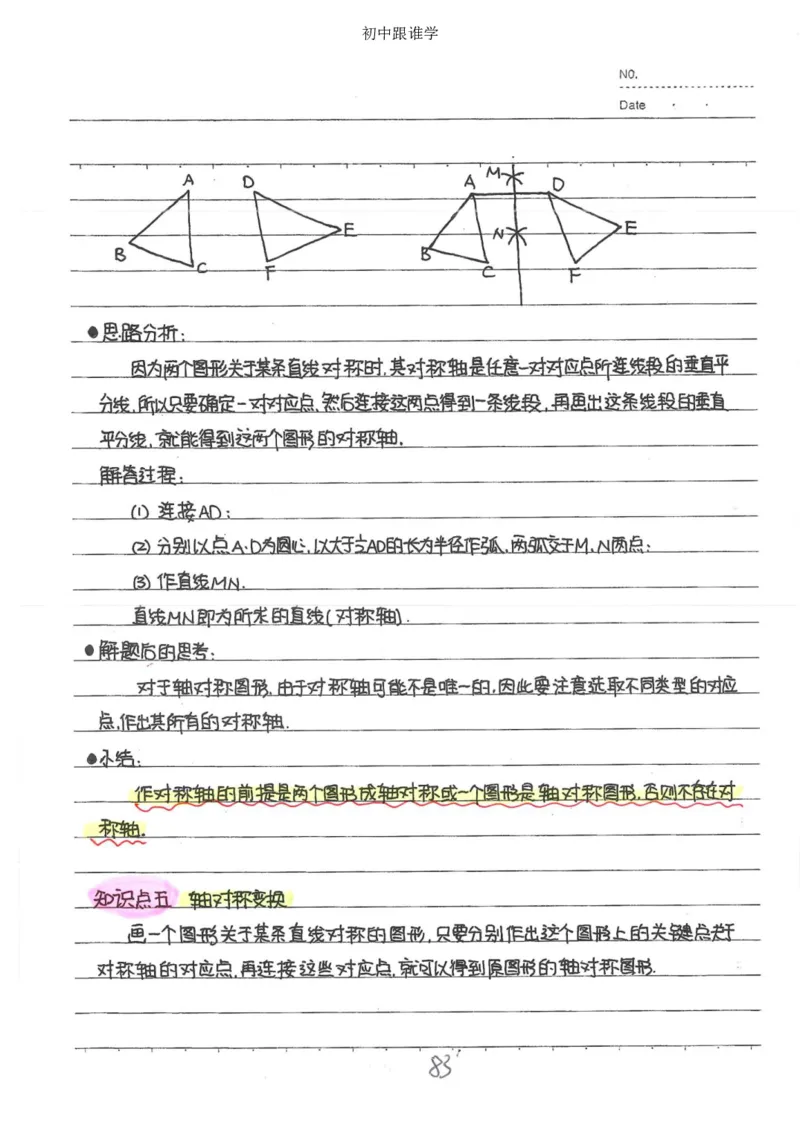 初中跟谁学
NO.
Date
A D A M D
B C F E B C N F E
●思路分析:
因为两个图形关于某条直线对称时,其对称轴是任意一对对应点所连线段的垂直平
分线,所以只要确定一对对应点,然后连接这两点得到一条线段,再画出这条线段的垂直
平分线,就能得到这两个图形的对称轴.
解答过程:
(1) 连接AD;
(2) 分别以点A、D为圆心,以大于½AD的长为半径作弧,两弧交于M、N两点;
(3) 作直线MN.
直线MN即为所求的直线(对称轴).
●解题后的思考:
对于轴对称图形,由于对称轴可能不是唯一的,因此要注意选取不同类型的对应
点,作出其所有的对称轴.
●小结:
作对称轴的前提是两个图形成轴对称或一个图形是轴对称图形,否则不存在对
称轴.
知识点五 轴对称变换
画一个图形关于某条直线对称的图形,只要分别作出这个图形上的关键点关于
对称轴的对应点,再连接这些对应点,就可以得到原图形的轴对称图形.
83